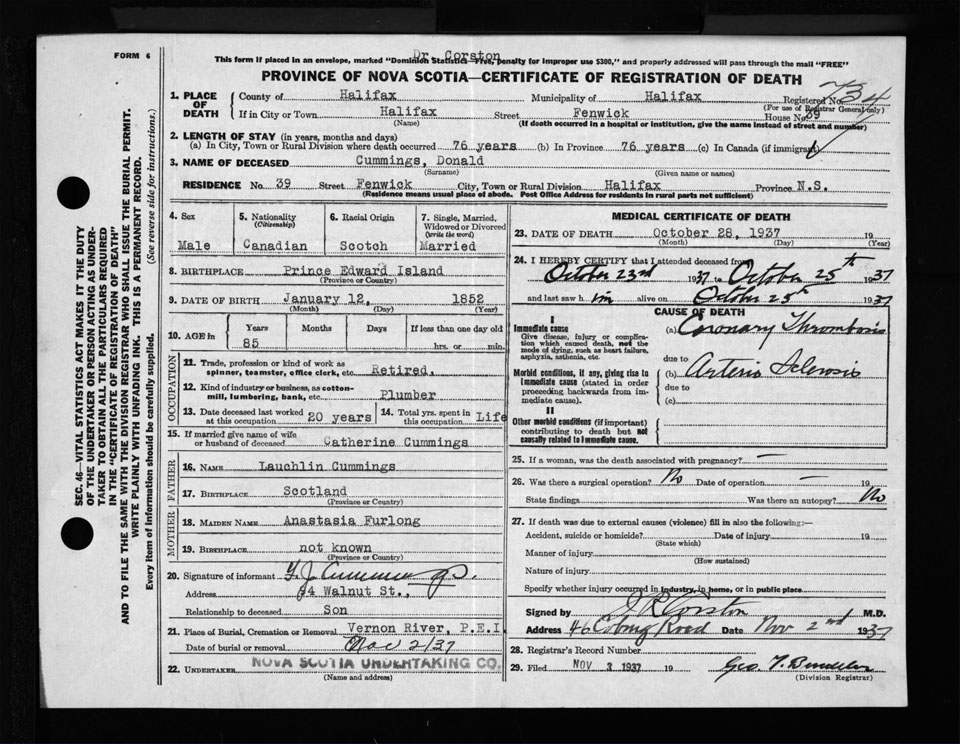 FORM 6
Dr. Corston
This form if placed in an envelope, marked "Dominion Statistics—Free, penalty for improper use $300," and properly addressed will pass through the mail "FREE"
PROVINCE OF NOVA SCOTIA—CERTIFICATE OF REGISTRATION OF DEATH
1. PLACE OF DEATH County of Halifax Municipality of Halifax Registered No. 734
(For use of Registrar General only)
If in City or Town Halifax Street Fenwick House No. 39
(Name) (If death occurred in a hospital or institution, give the name instead of street and number)
2. LENGTH OF STAY (in years, months and days)
(a) In City, Town or Rural Division where death occurred 76 years (b) In Province 76 years (c) In Canada (if immigrant)
3. NAME OF DECEASED Cummings, Donald
(Surname) (Given name or names)
RESIDENCE No. 39 Street Fenwick City, Town or Rural Division Halifax Province N.S.
(Residence means usual place of abode. Post Office Address for residents in rural parts not sufficient)
4. Sex 5. Nationality (Citizenship) 6. Racial Origin 7. Single, Married, Widowed or Divorced (write the word)
Male Canadian Scotch Married
8. BIRTHPLACE Prince Edward Island
(Province or Country)
9. DATE OF BIRTH January 12, 1852
(Month) (Day) (Year)
10. AGE in Years Months Days If less than one day old
85 hrs. or min.
OCCUPATION
11. Trade, profession or kind of work as
spinner, teamster, office clerk, etc. Retired.
12. Kind of industry or business, as cotton-
mill, lumbering, bank, etc. Plumber
13. Date deceased last worked at this occupation 20 years 14. Total yrs. spent in this occupation Life
15. If married give name of wife
or husband of deceased Catherine Cummings
FATHER
16. NAME Lauchlin Cummings
17. BIRTHPLACE Scotland
(Province or Country)
MOTHER
18. MAIDEN NAME Anastasia Furlong
19. BIRTHPLACE not known
(Province or Country)
20. Signature of informant Cummings
Address 94 Walnut St.,
Relationship to deceased Son
21. Place of Burial, Cremation or Removal Vernon River, P.E.I.
Date of burial or removal Nov 2/37
22. UNDERTAKER NOVA SCOTIA UNDERTAKING CO.
(Name and address)
MEDICAL CERTIFICATE OF DEATH
23. DATE OF DEATH October 28, 1937 19
(Month) (Day) (Year)
24. I HEREBY CERTIFY that I attended deceased from
October 23rd 1937 to October 25th 1937
and last saw him alive on October 25th 1937
CAUSE OF DEATH
I
Immediate cause (a) Coronary Thrombosis
Give disease, injury or complica-
tion which caused death, not the
mode of dying, such as heart failure,
asphyxia, asthenia, etc.
due to
Morbid conditions, if any, giving rise to (b) Arterio Sclerosis
immediate cause (stated in order due to
proceeding backwards from im-
mediate cause). (c)
II
Other morbid conditions (if important)
contributing to death but not
causally related to immediate cause.
25. If a woman, was the death associated with pregnancy? —
26. Was there a surgical operation? No Date of operation — 19
State findings Was there an autopsy? No
27. If death was due to external causes (violence) fill in also the following:—
Accident, suicide or homicide? Date of injury 19
(State which)
Manner of injury
(How sustained)
Nature of injury
Specify whether injury occurred in industry, in home, or in public place
Signed by J R Corston M.D.
Address 46 Coburg Road Date Nov 2nd 1937
28. Registrar's Record Number
29. Filed NOV 3 1937 19 Geo.
(Division Registrar)
SEC. 46—VITAL STATISTICS ACT MAKES IT THE DUTY
OF THE UNDERTAKER OR PERSON ACTING AS UNDER-
TAKER TO OBTAIN ALL THE PARTICULARS REQUIRED
IN THE "CERTIFICATE OF REGISTRATION OF DEATH"
AND TO FILE THE SAME WITH THE DIVISION REGISTRAR WHO SHALL ISSUE THE BURIAL PERMIT.
WRITE PLAINLY WITH UNFADING INK. THIS IS A PERMANENT RECORD.
Every item of information should be carefully supplied. (See reverse side for instructions.)